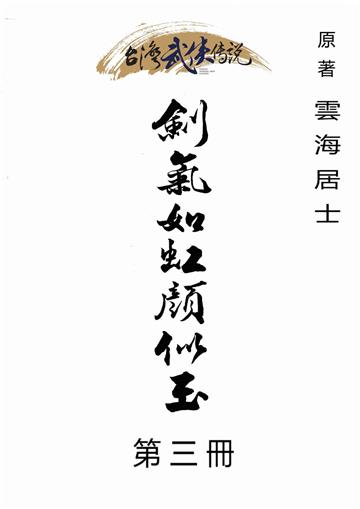 台灣武侠傳説
原著 雲海居士
劍氣如虹顏似玉
第三冊